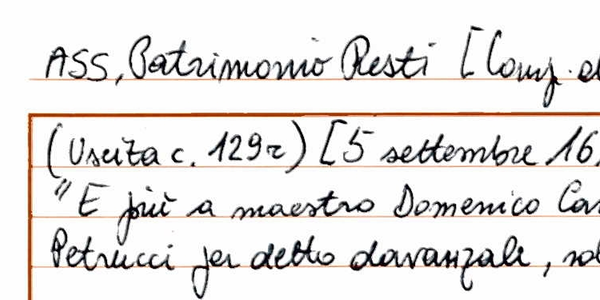 ASS, Patrimonio Resti [Comp.
(Uscita c. 129r) [5 settembre 16
"E più a maestro Domenico
Petrucci per detto davanzale,